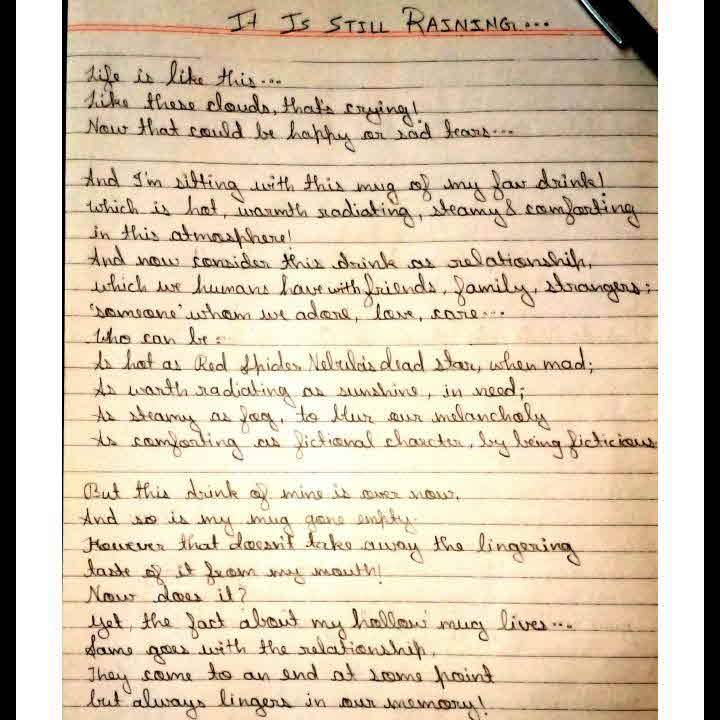 It Is Still Raining....
Life is like this...
Like these clouds, that's crying!
Now that could be happy or sad tears...
And I'm sitting with this mug of my fav drink!
Which is hot, warmth radiating, steamy & comforting
in this atmosphere!
And now consider this drink as relationship,
which we humans have with friends, family, strangers;
'someone' whom we adore, love, care...
Who can be:
As hot as Red Spider Nebula's dead star, when mad;
As warth radiating as sunshine, in need;
As steamy as fog, to blur our melancholy
As comforting as fictional charcter, by being ficticious
But this drink of mine is over now.
And so is my mug gone empty.
However that doesn't take away the lingering
taste of it from my mouth!
Now does it?
Yet, the fact about my hollow mug lives...
Same goes with the relationship,
They come to an end at some point
but always lingers in our memory!